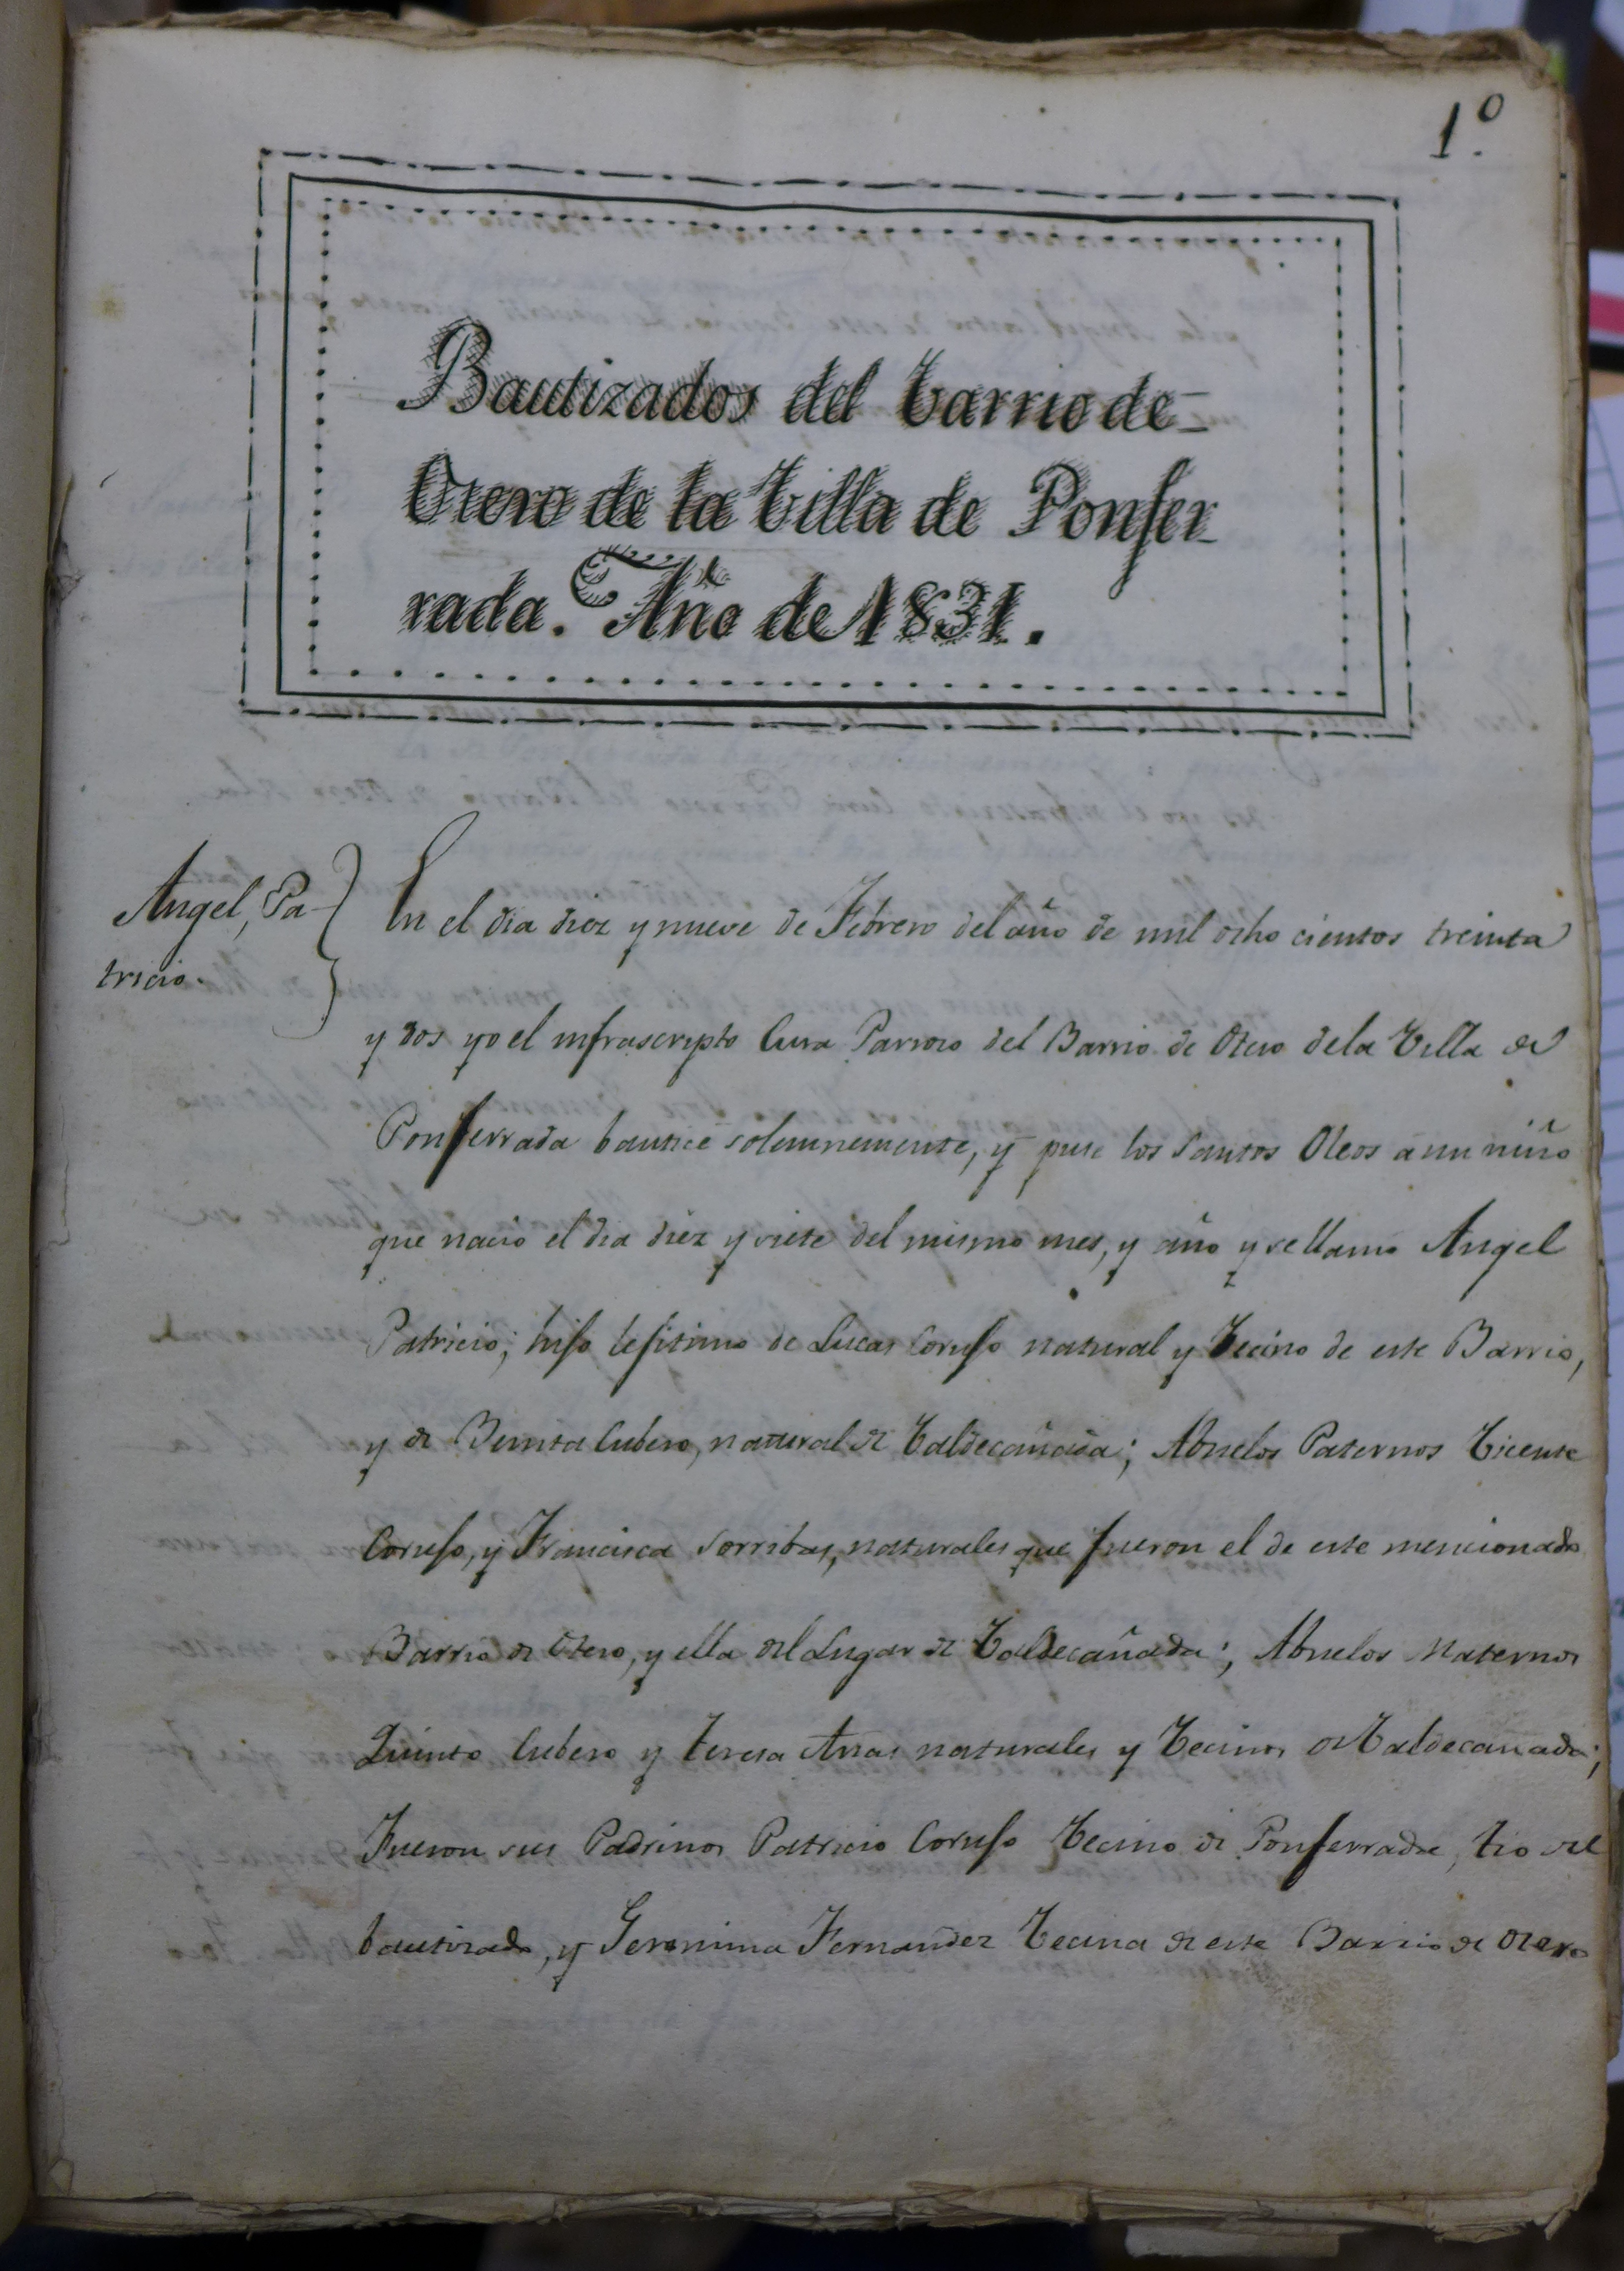 1.º
Bautizados del barrio de
Otero de la Villa de Ponfer
rada. Año de 1831.
Angel, Pa-
tricio.
En el dia diez y nueve de Febrero del año de mil ocho cientos treinta
y dos yo el infrascripto Cura Parroco del Barrio de Otero de la Villa de
Ponferrada bautice solemnemente, y puse los Santos Oleos a un niño
que nacio el dia diez y siete del mismo mes, y año y se llamo Angel
Patricio; hijo lejitimo de Lucas Corujo natural y Vecino de este Barrio,
y de Benita Cubero, natural de Valdecañada; Abuelos Paternos Vicente
Corujo, y Francisca Sorribas, naturales que fueron el de este mencionado
Barrio de Otero, y ella del Lugar de Valdecañada; Abuelos Maternos
Quinto Cubero y Teresa Arias naturales y Vecinos de Valdecañada;
Fueron sus Padrinos Patricio Corujo Vecino de Ponferrada, tio del
bautizado, y Geronima Fernandez Vecina de este Barrio de Otero